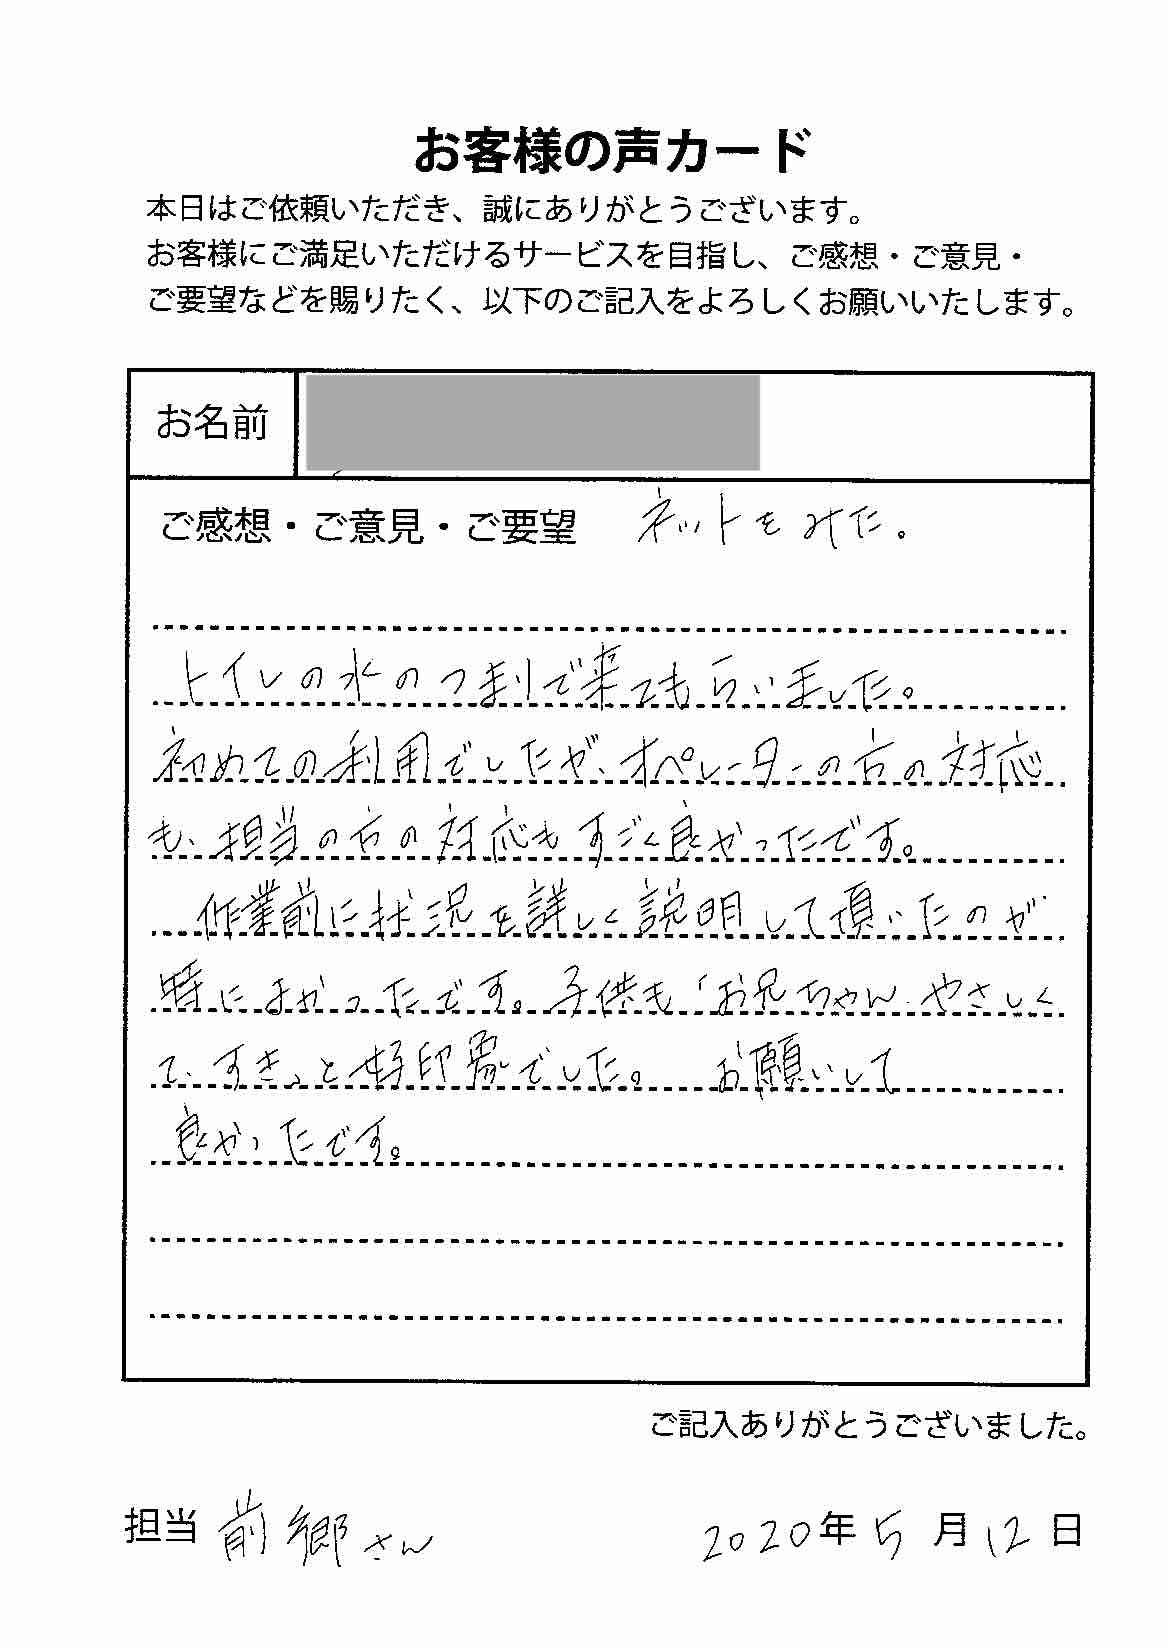 お客様の声カード
本日はご依頼いただき、誠にありがとうございます。
お客様にご満足いただけるサービスを目指し、ご感想・ご意見・
ご要望などを賜りたく、以下のご記入をよろしくお願いいたします。
お名前
ご感想・ご意見・ご要望 ネットをみた。
トイレの水のつまりで来てもらいました。
初めての利用でしたが、オペレーターの方の対応
も、担当の方の対応もすごく良かったです。
作業前に状況を詳しく説明して頂いたのが
時によかったです。子供も「お兄ちゃん、やさしく
て、すき」と好印象でした。 お願いして
良かったです。
ご記入ありがとうございました。
担当 前郷さん 2020年 5月 12日